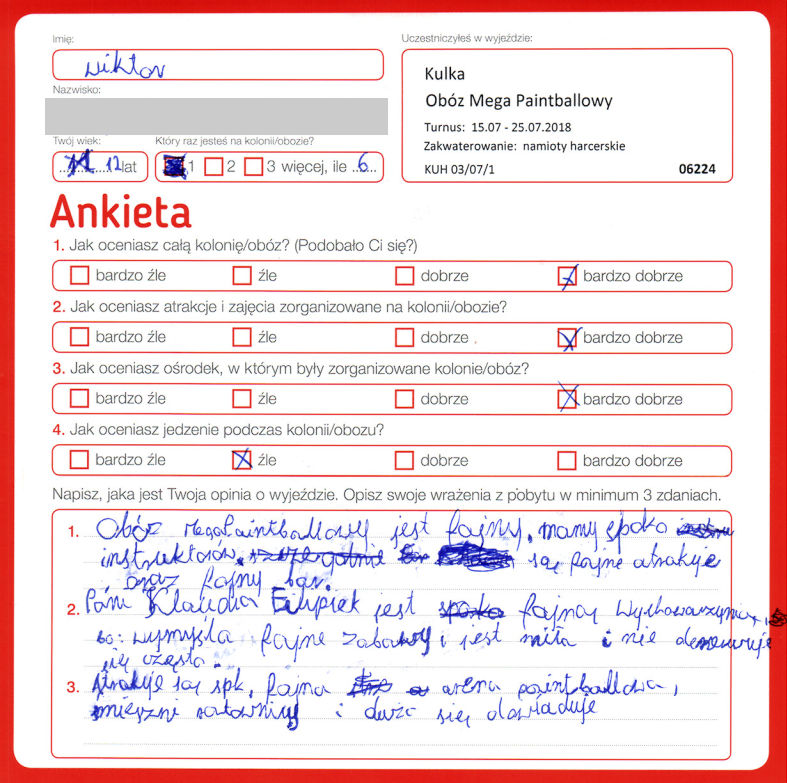 Imię:
Wiktor
Nazwisko:
Twój wiek:
12 lat
Który raz jesteś na kolonii/obozie?
1 2 3 więcej, ile 6
Uczestniczyłeś w wyjeździe:
Kulka
Obóz Mega Paintballowy
Turnus: 15.07 - 25.07.2018
Zakwaterowanie: namioty harcerskie
KUH 03/07/1 06224
Ankieta
1. Jak oceniasz całą kolonię/obóz? (Podobało Ci się?)
bardzo źle źle dobrze bardzo dobrze
2. Jak oceniasz atrakcje i zajęcia zorganizowane na kolonii/obozie?
bardzo źle źle dobrze bardzo dobrze
3. Jak oceniasz ośrodek, w którym były zorganizowane kolonie/obóz?
bardzo źle źle dobrze bardzo dobrze
4. Jak oceniasz jedzenie podczas kolonii/obozu?
bardzo źle źle dobrze bardzo dobrze
Napisz, jaka jest Twoja opinia o wyjeździe. Opisz swoje wrażenia z pobytu w minimum 3 zdaniach.
1. Obóz MegaPaintballowy jest fajny, mamy spoko
instruktorów, są fajne atrakcje
oraz fajny bar.
2. Pani Klaudia Filipiek jest fajną wychowawczynią,
bo: wymyśla fajne zabawy i jest miła i nie denerwuje
się często.
3. Atrakcje są spk, fajna arena paintballowa,
śmieszni ratownicy i dużo się dowiaduje